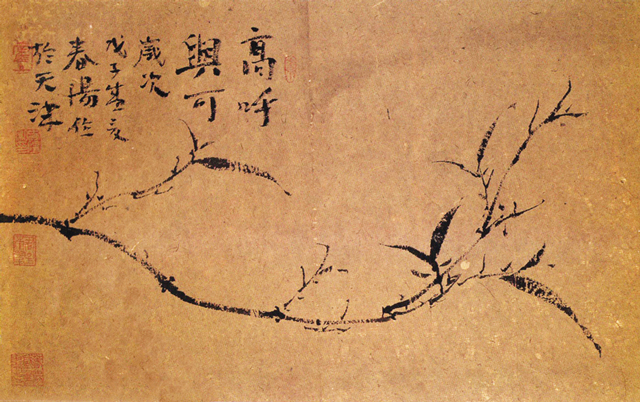 高呼
與可
歲次
戊子
春陽作
於天津